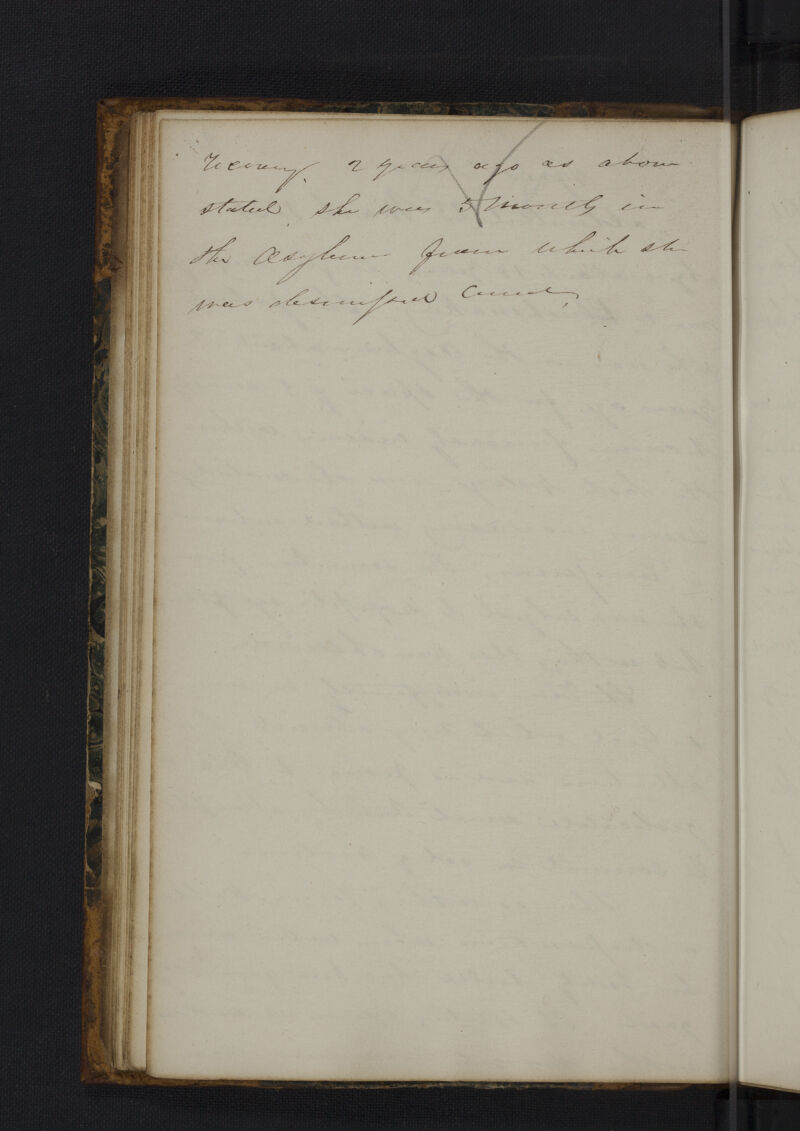 2 years ago as above
stated she was 5 months in
the Asylum from which she
was dismissed Cured,